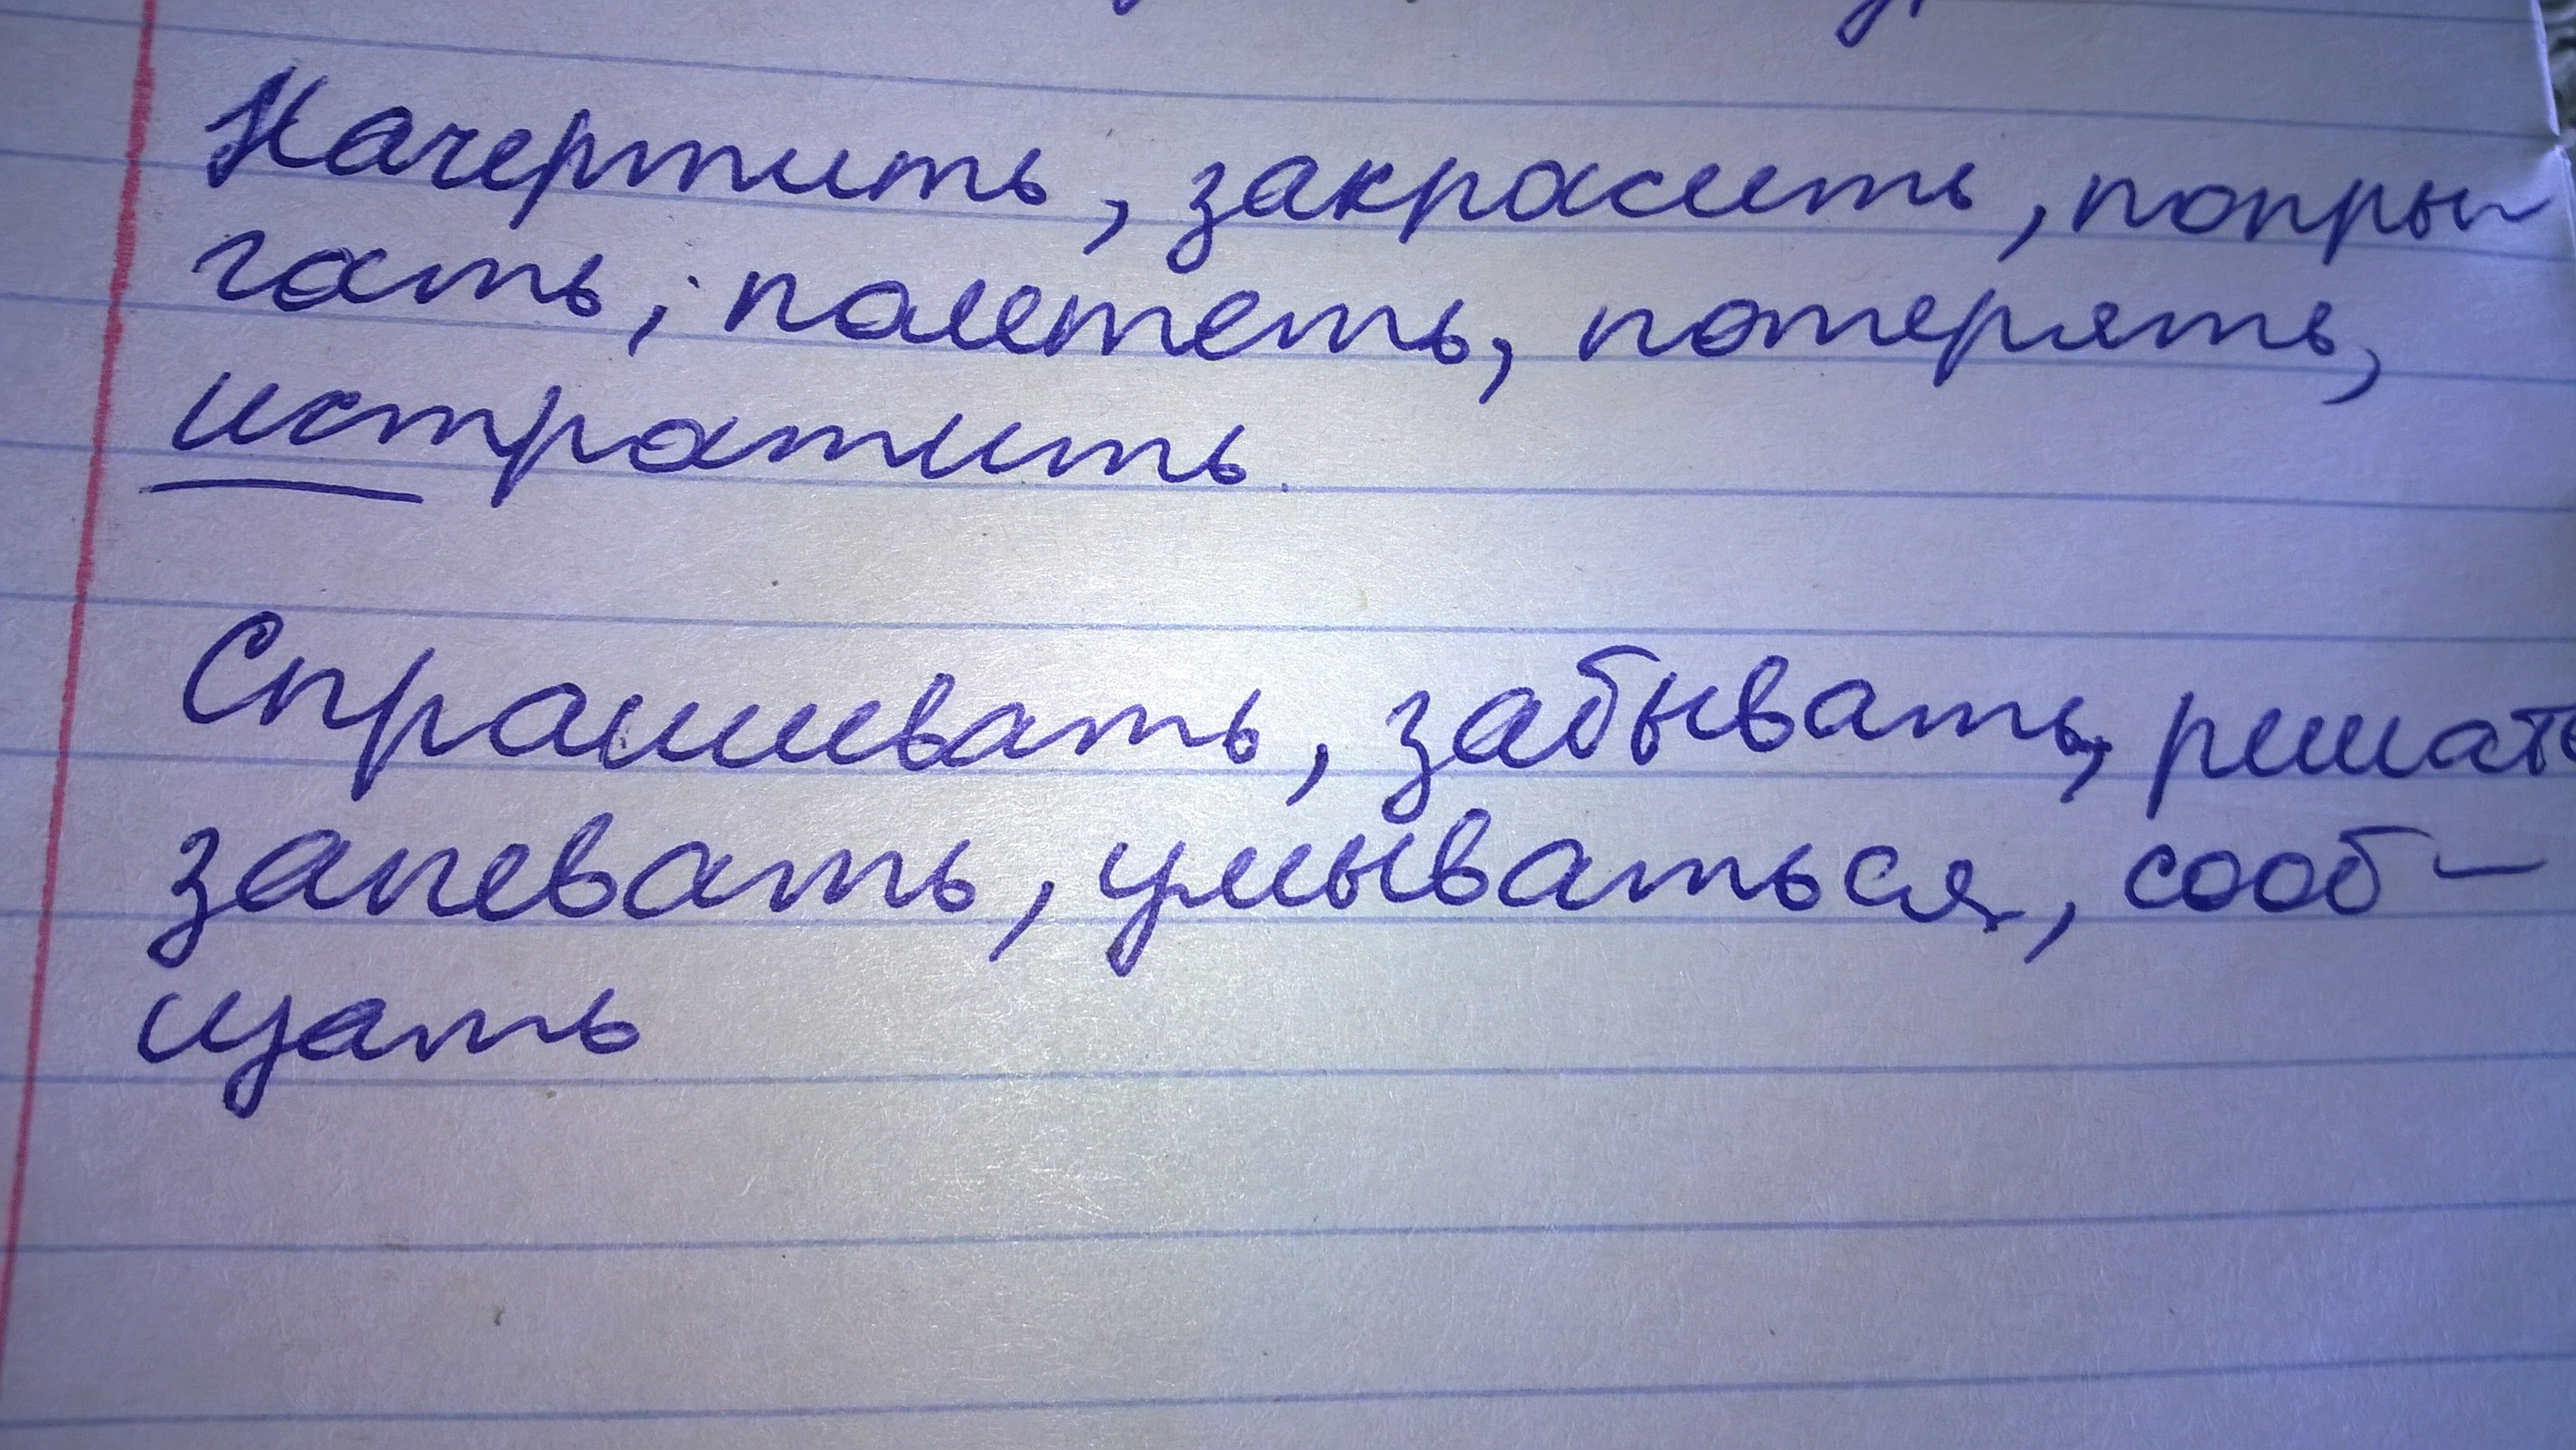 Начертить, закрасить, попры-
гать, полететь, потерять,
истратить.
Спрашивать, забывать, решать
запевать, умываться, сооб-
щать